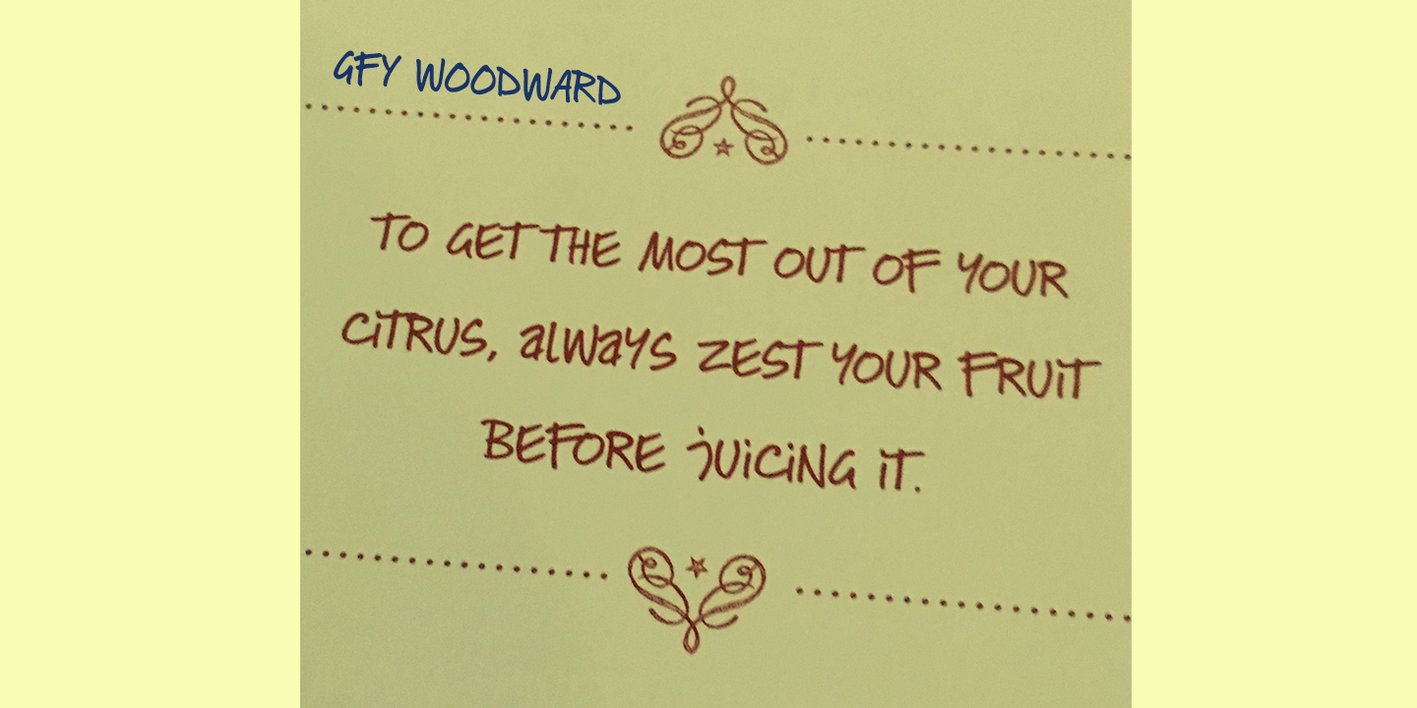 GFY WOODWARD
TO GET THE MOST OUT OF YOUR
CiTRUS, alWaYS ZEST YOUR FRUiT
BEFORE jUiCiNG iT.